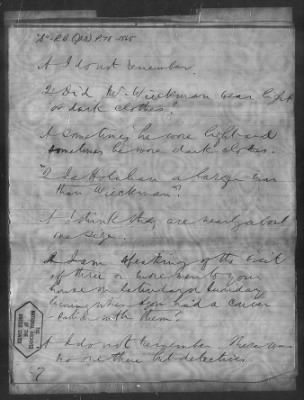 A I do not remember.
Q Did Mr. Wieckman wear light
or dark clothes?
A Sometimes he wore light and
sometimes he wore dark clothes.
Q Is Holohan a larger man
than Wieckman?
A I think they are nearly about
one size.
Q I am speaking of the visit
of three or more men to your
house on Saturday or Sunday
when you had a
with them?
A I do not remember. There was
no one there but detectives